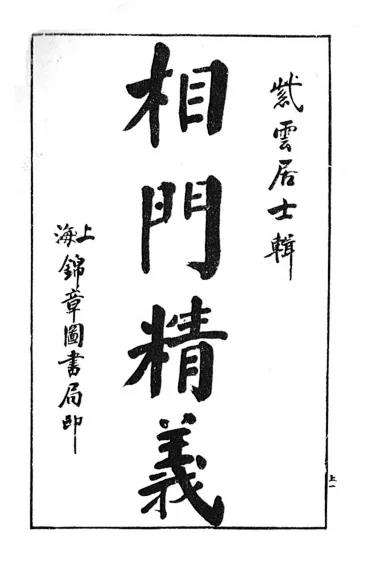 紫雲居士輯
相門精義
上海錦章圖書局印
上一